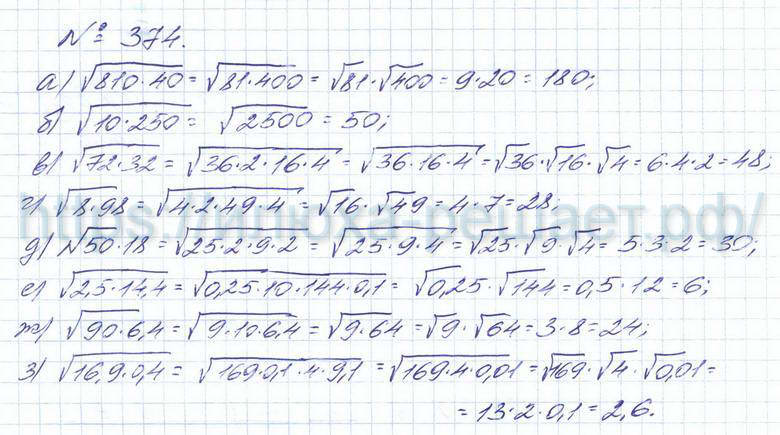 № 374.
а) √810·40 = √81·400 = √81·√400 = 9·20 = 180;
б) √10·250 = √2500 = 50;
в) √72·32 = √36·2·16·4 = √36·16·4 = √36·√16·√4 = 6·4·2 = 48;
г) √8·98 = √4·2·49·4 = √16·√49 = 4·7 = 28;
д) √50·18 = √25·2·9·2 = √25·9·4 = √25·√9·√4 = 5·3·2 = 30;
е) √2,5·14,4 = √0,25·10·144·0,1 = √0,25·√144 = 0,5·12 = 6;
ж) √90·6,4 = √9·10·6,4 = √9·64 = √9·√64 = 3·8 = 24;
з) √16,9·0,4 = √169·0,1·4·9,1 = √169·4·0,01 = √169·√4·√0,01 =
= 13·2·0,1 = 2,6.